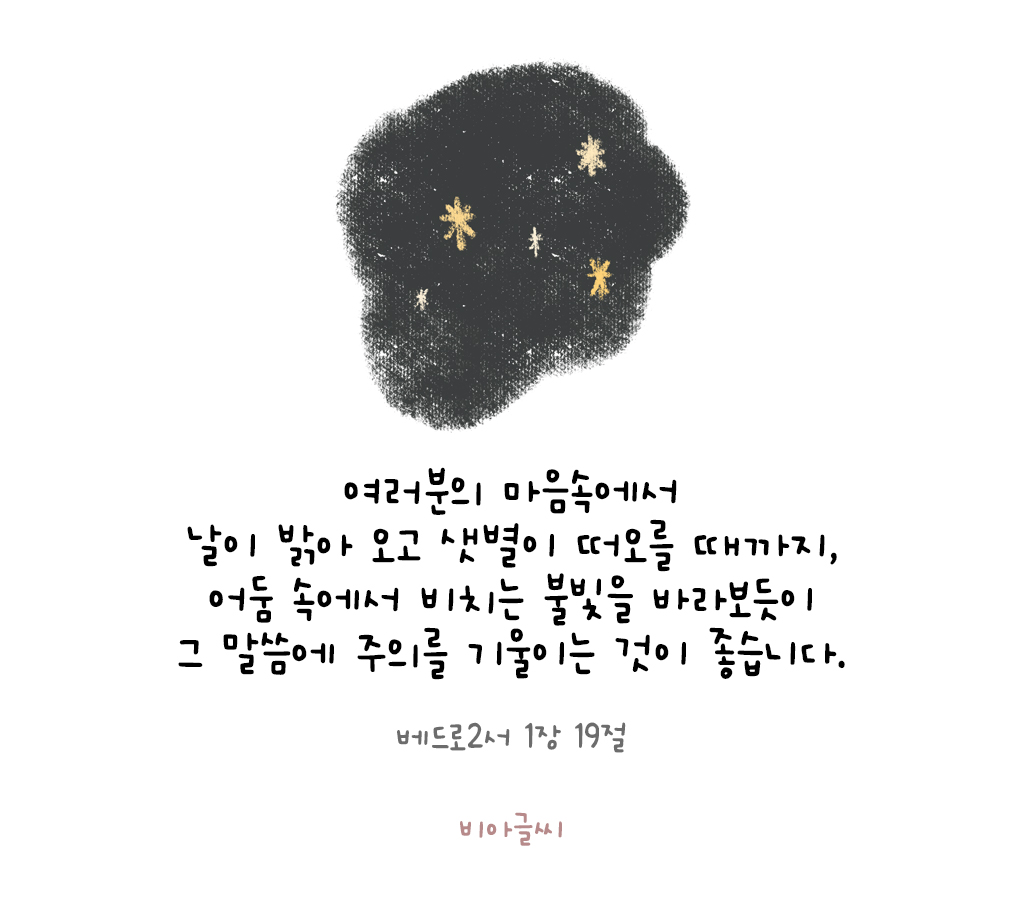 여러분의 마음속에서
날이 밝아 오고 샛별이 떠오를 때까지,
어둠 속에서 비치는 불빛을 바라보듯이
그 말씀에 주의를 기울이는 것이 좋습니다.
베드로2서 1장 19절
비아글씨